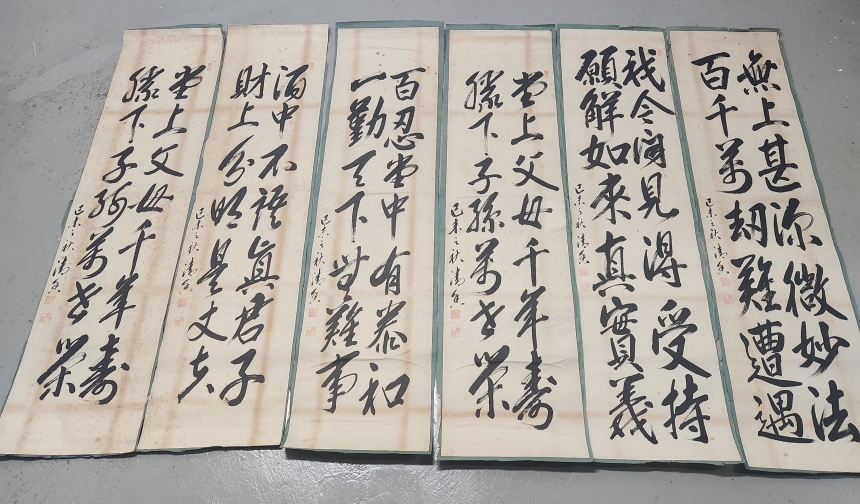 無上甚深微妙法
百千萬劫難遭遇
己未之秋
我今聞見得受持
願解如來真實義
己未之秋
堂上父母千年壽
膝下子孫萬世榮
己未之秋
百忍堂中有泰和
一勤天下無難事
己未之秋
酒中不語眞君子
財上分明是丈夫
己未之秋
堂上父母千年壽
膝下子孫萬世榮
己未之秋